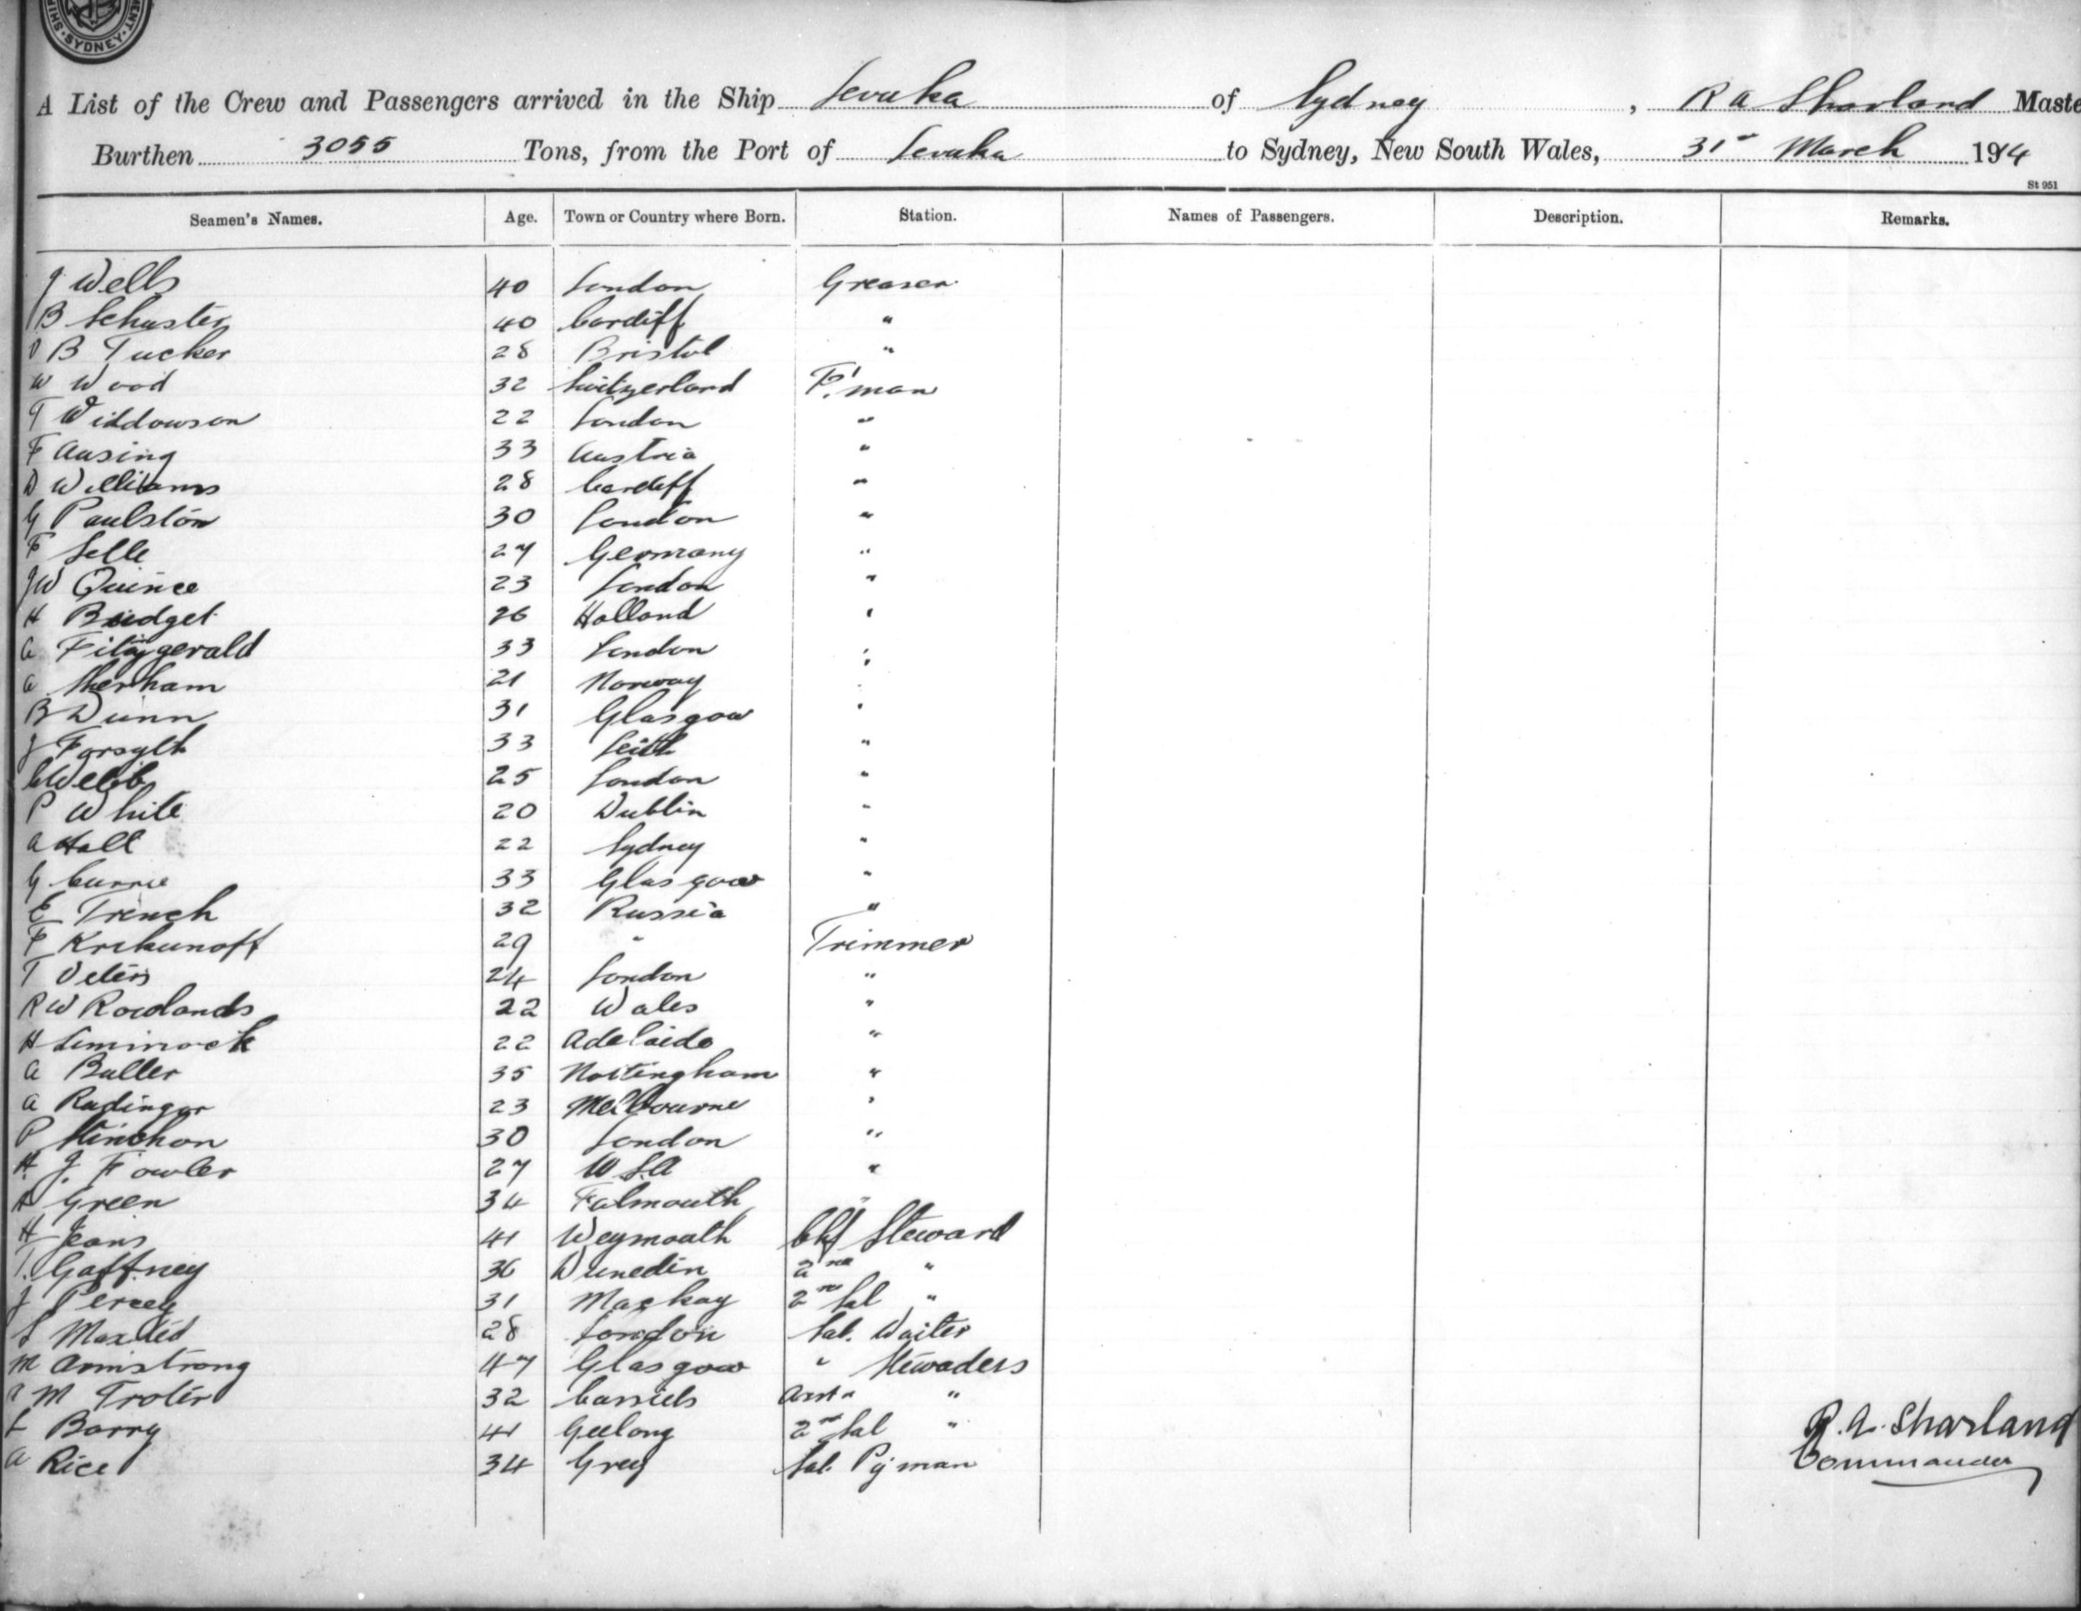 SYDNEY
A List of the Crew and Passengers arrived in the Ship Levuka of Sydney, R A Sharland Maste
Burthen 3055 Tons, from the Port of Levuka to Sydney, New South Wales, 31st March 1914
St 951
Seamen's Names. Age. Town or Country where Born. Station. Names of Passengers. Description. Remarks.
J Wells 40 London Greaser
B Schuster 40 Cardiff "
B Tucker 28 Bristol "
W Wood 32 Switzerland F'man
T Widdowson 22 London "
F Ausing 33 Austria "
D Williams 28 Cardiff "
G Paulston 30 London "
F Selle 27 Germany "
JW Quince 23 London "
H Budget 26 Holland "
A Fitzgerald 33 London "
A 21 Norway "
B Dunn 31 Glasgow "
J Forsyth 33 Leith "
C Webb 25 London "
P White 20 Dublin "
A Hall 22 Sydney "
G Currie 33 Glasgow "
E Trench 32 Russia "
F Krikunoff 29 " Trimmer
T 24 London "
R W Rowlands 22 Wales "
H 22 Adelaide "
A Buller 35 Nottingham "
A Radingar 23 Melbourne "
P 30 London "
H. J. Fowler 27 "
Green 34 Falmouth "
H Jeans 41 Weymouth Chf Steward
T. Gaffney 36 Dunedin 2nd "
J Percey 31 Mackay 2nd Sal "
S Maxted 28 London Sal. Waiter
M Armstrong 47 Glasgow " Stewaders
M Troter 32 Asst " "
L Barry 41 Geelong 2nd Sal "
A Rice 34 Grey Sal. P'man
R. A. Sharland
Commander